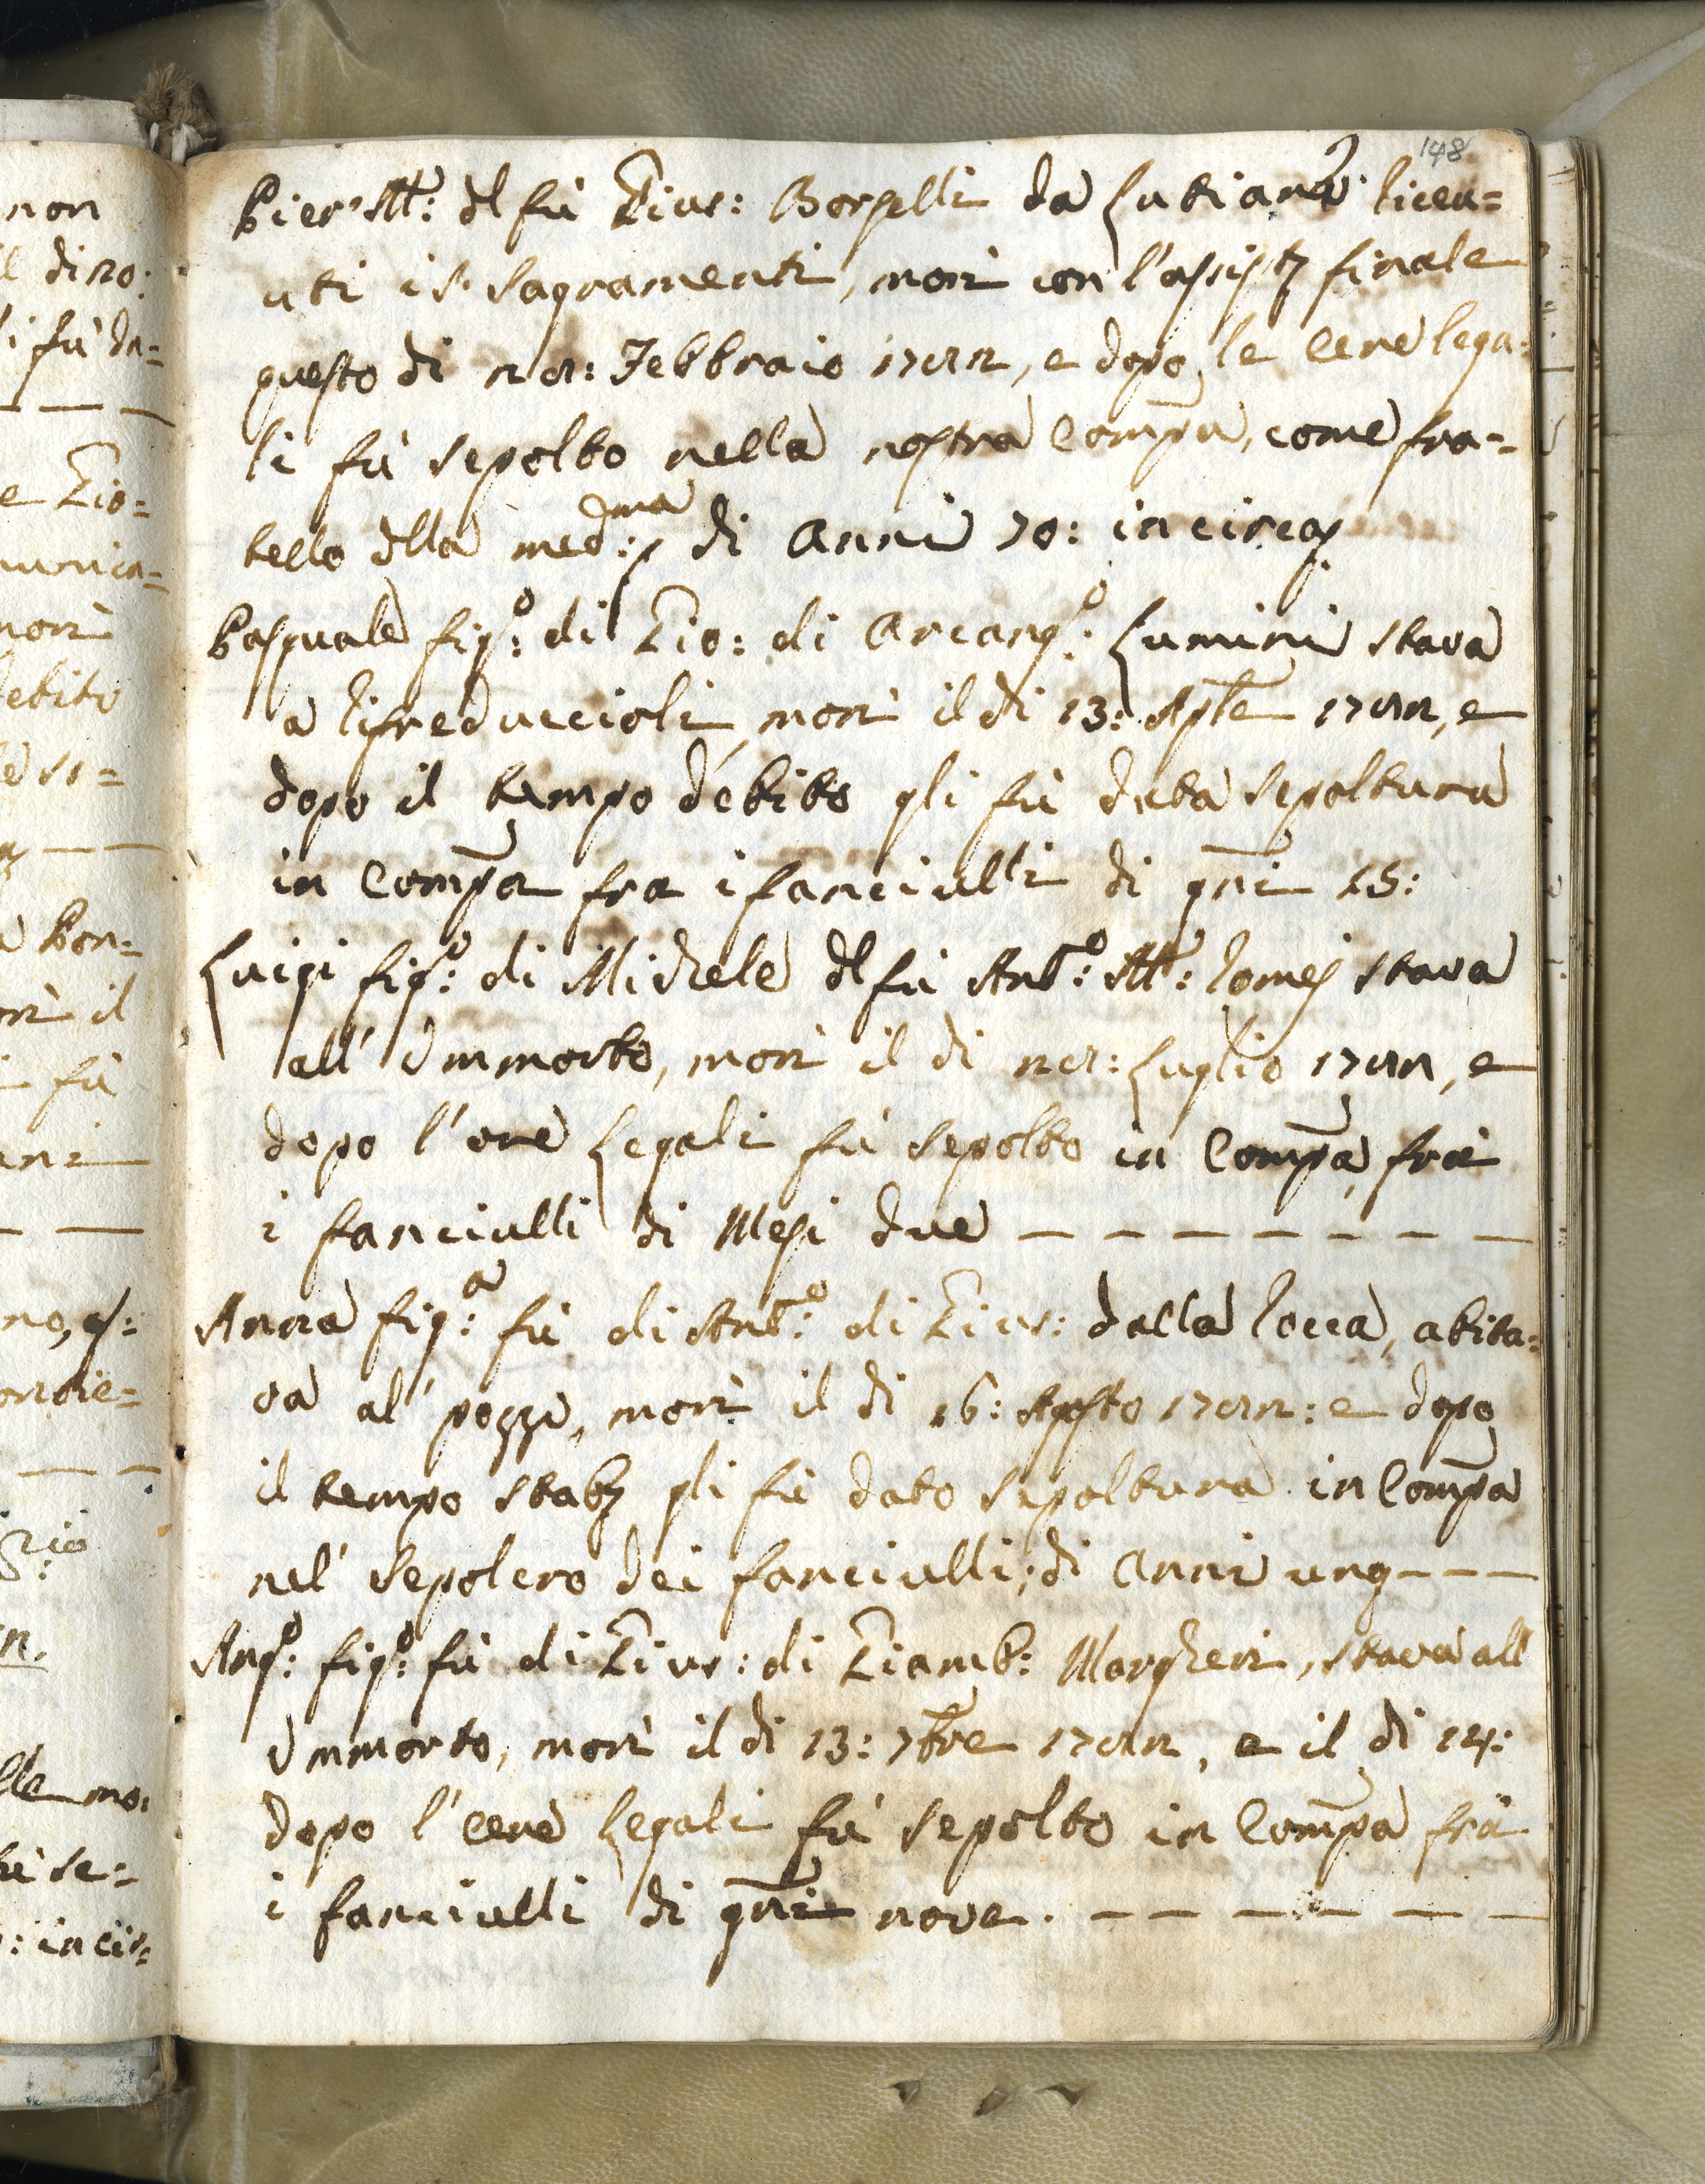 148
Pier' Ant.: del fù Gius: Borselli da Lutiano: riceu=
uti i S. Sagramenti, morì con l'assistz finale
questo di 28: Febbraio 1782, e dopo le Cere lega=
li fù sepolto nella nostra Compa, come fra=
tello della med:ma di anni 70: in circa
Pasquale figo: di Gio: di Arcango: Lumini stava
a Rifreduccioli morì il di 13: Aple 1782, e
dopo il tempo debito gli fù data sepoltura
in Compa fra i fanciulli di gni 15:
Luigi figo: di Michele del fù Anto: Ma: Romej stava
all' Ummorto, morì il di 28: Luglio 1782, e
dopo l'ore Legali fù sepolto in Compa frà
i fanciulli di Mesi due — — — — — — —
Anna figa: fù di Anto: di Gius: dalla Rocca, abita=
va al' pozzo, morì il di 16: Agosto 1782: e dopo
il tempo gli fù dato sepoltura in Compa
nel' Sepolcro dei fanciulli; di anni uno - - -
Ango: figo: fù di Gius: di Giamb: Margheri, stava all'
Ummorto, morì il di 13: 7bre 1782, e il di 14:
dopo l'cere Legali fù sepolto in Compa frà
i fanciulli di gni nove. — — — — — —